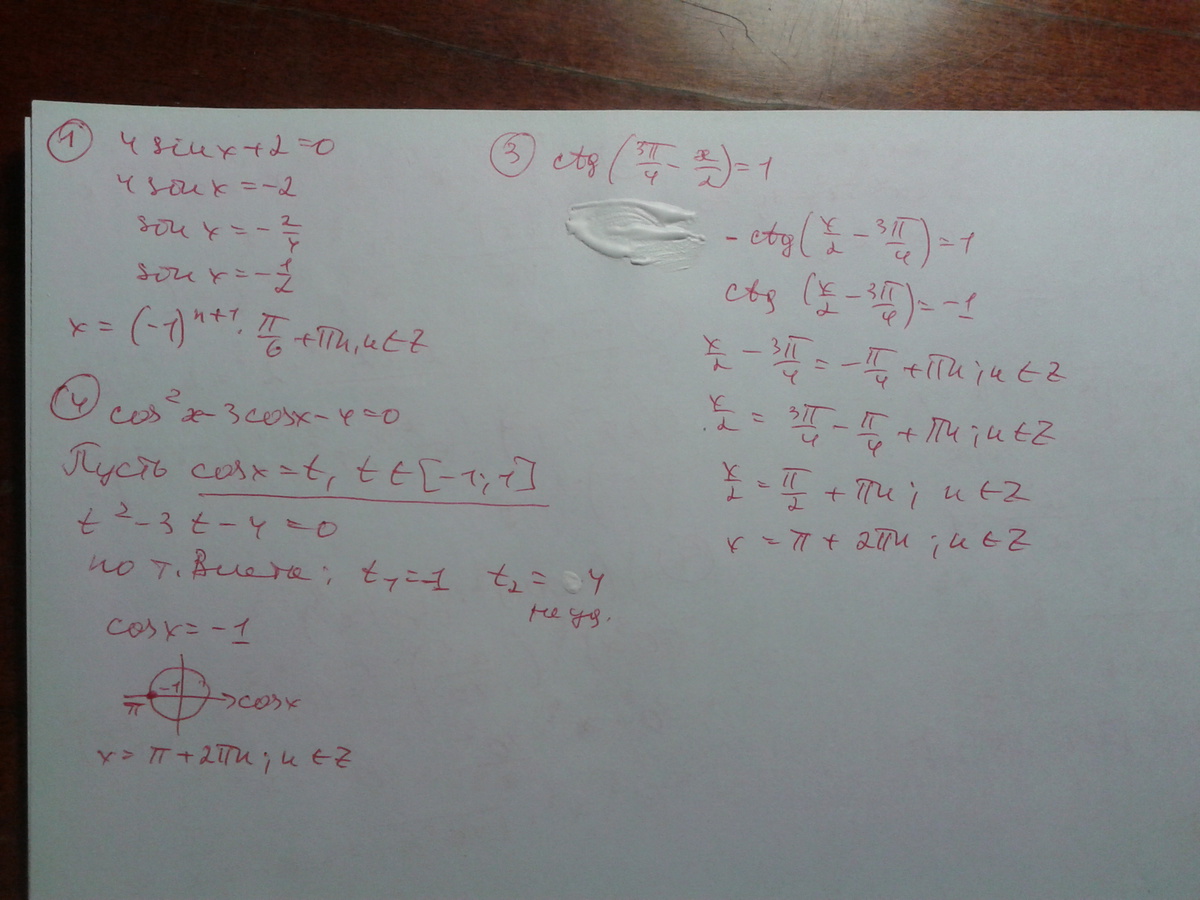 ① 4 sin x + 2 = 0
4 sin x = -2
sin x = -2/4
sin x = -1/2
x = (-1)^{n+1} · π/6 + πn, n ∈ Z
④ cos²x - 3cosx - 4 = 0
Пусть cosx = t, t ∈ [-1; 1]
t² - 3t - 4 = 0
по т. Виета: t₁ = -1 t₂ = 4
не уд.
cosx = -1
-1
π cosx
x = π + 2πn; n ∈ Z
③ ctg (3π/4 - x/2) = 1
- ctg (x/2 - 3π/4) = 1
ctg (x/2 - 3π/4) = -1
x/2 - 3π/4 = -π/4 + πn; n ∈ Z
x/2 = 3π/4 - π/4 + πn; n ∈ Z
x/2 = π/2 + πn; n ∈ Z
x = π + 2πn; n ∈ Z